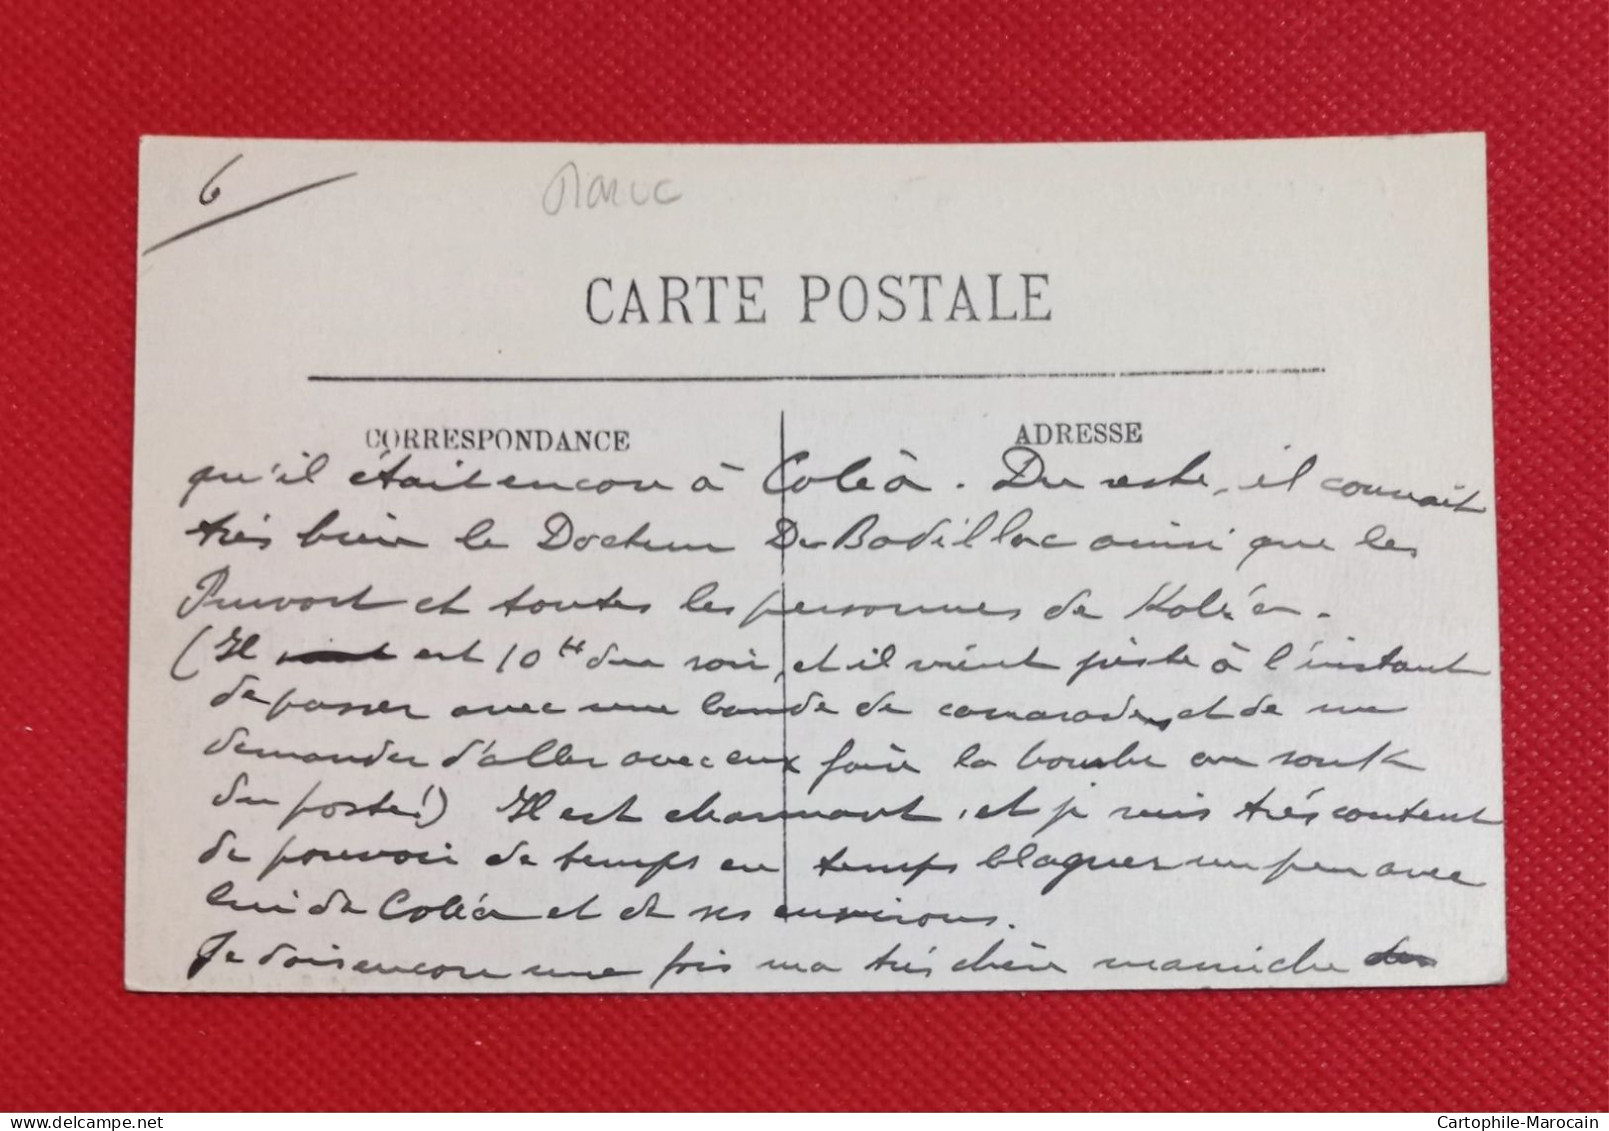 6
Maroc
CARTE POSTALE
CORRESPONDANCE
ADRESSE
qu'il était encore à Coléà. Du reste, il connaît
très bien le Docteur De Badillac ainsi que les
Pruvost et toutes les personnes de Koléa.
(Il est 10h du soir, et il vient juste à l'instant
de passer avec une bande de camarades, et de me
demander d'aller avec eux faire la bombe au souk
du poste!) Il est charmant, et je suis très content
de pouvoir de temps en temps blaguer un peu avec
lui de Coléa et de ses environs.
Je dois encore une fois ma très chère
Cartophile-Marocain